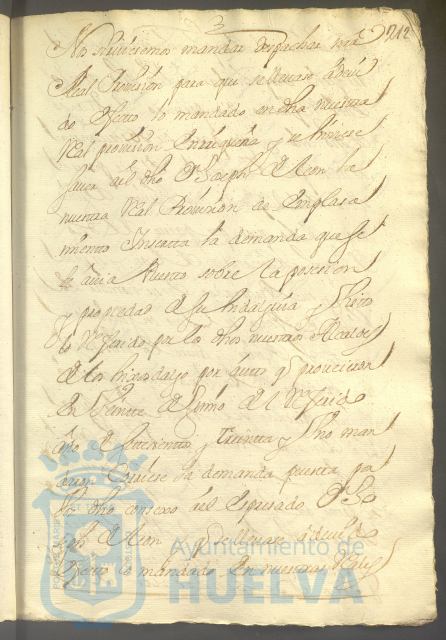 3
212
Nos sirviesemos mandar despachar nra
Real Provision para que se llevase a devi
do efecto lo mandado en dha nuestra
Real provision y se hiciese
saver al dho Dn Joseph de Leon la
nuestra Real Provision de emplasa
miento Inserta la demanda que se
le avia puesto sobre la posesion
y propiedad de su hidalguia y Visto
lo Referido por los dhos nuestros Alcaldes
de los hijosdalgo por auto q proveieron
en de el Referido
año de setecientos y treinta y dho man
daron Corriese la demanda puesta pa
la dho consexo al espresado Dn Jo
seph de Leon y se llevase a devido
efecto lo mandado en nuestras Reales
Ayuntamiento de
HUELVA